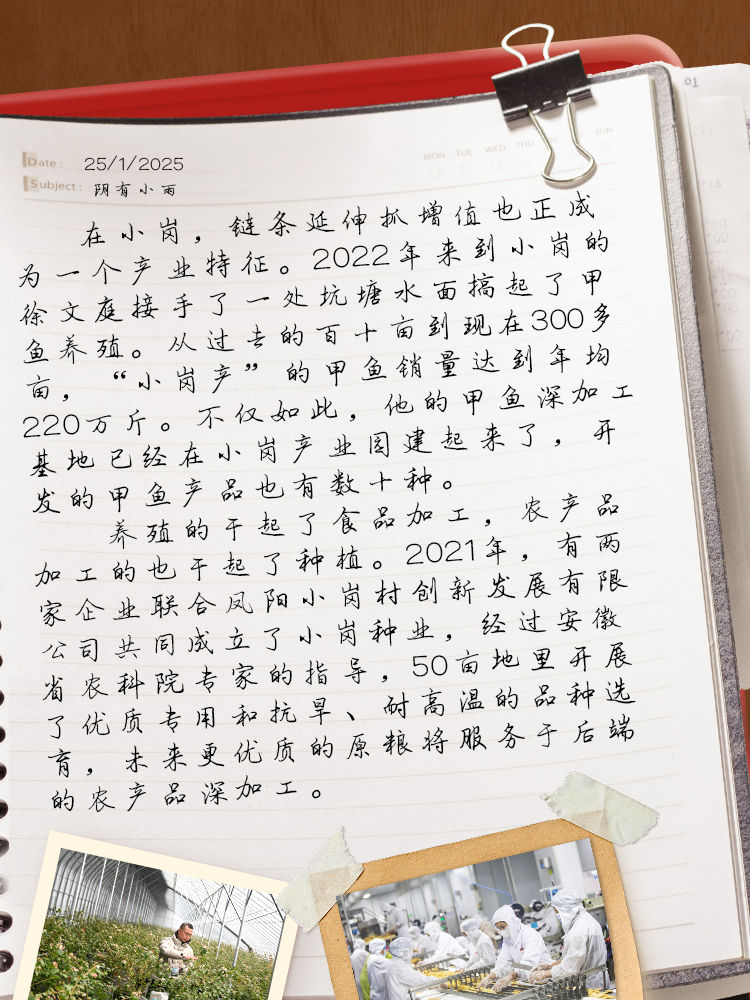 Date: 25/1/2025
Subject: 阴有小雨
MON TUE WED THU SUN
在小岗，链条延伸抓增值也正成
为一个产业特征。2022年来到小岗的
徐文庭接手了一处坑塘水面搞起了甲
鱼养殖。从过去的百十亩到现在300多
亩，“小岗产”的甲鱼销量达到年均
220万斤。不仅如此，他的甲鱼深加工
基地已经在小岗产业园建起来了，开
发的甲鱼产品也有数十种。
养殖的干起了食品加工，农产品
加工的也干起了种植。2021年，有两
家企业联合凤阳小岗村创新发展有限
公司共同成立了小岗种业，经过安徽
省农科院专家的指导，50亩地里开展
了优质专用和抗旱、耐高温的品种选
育，未来更优质的原粮将服务于后端
的农产品深加工。